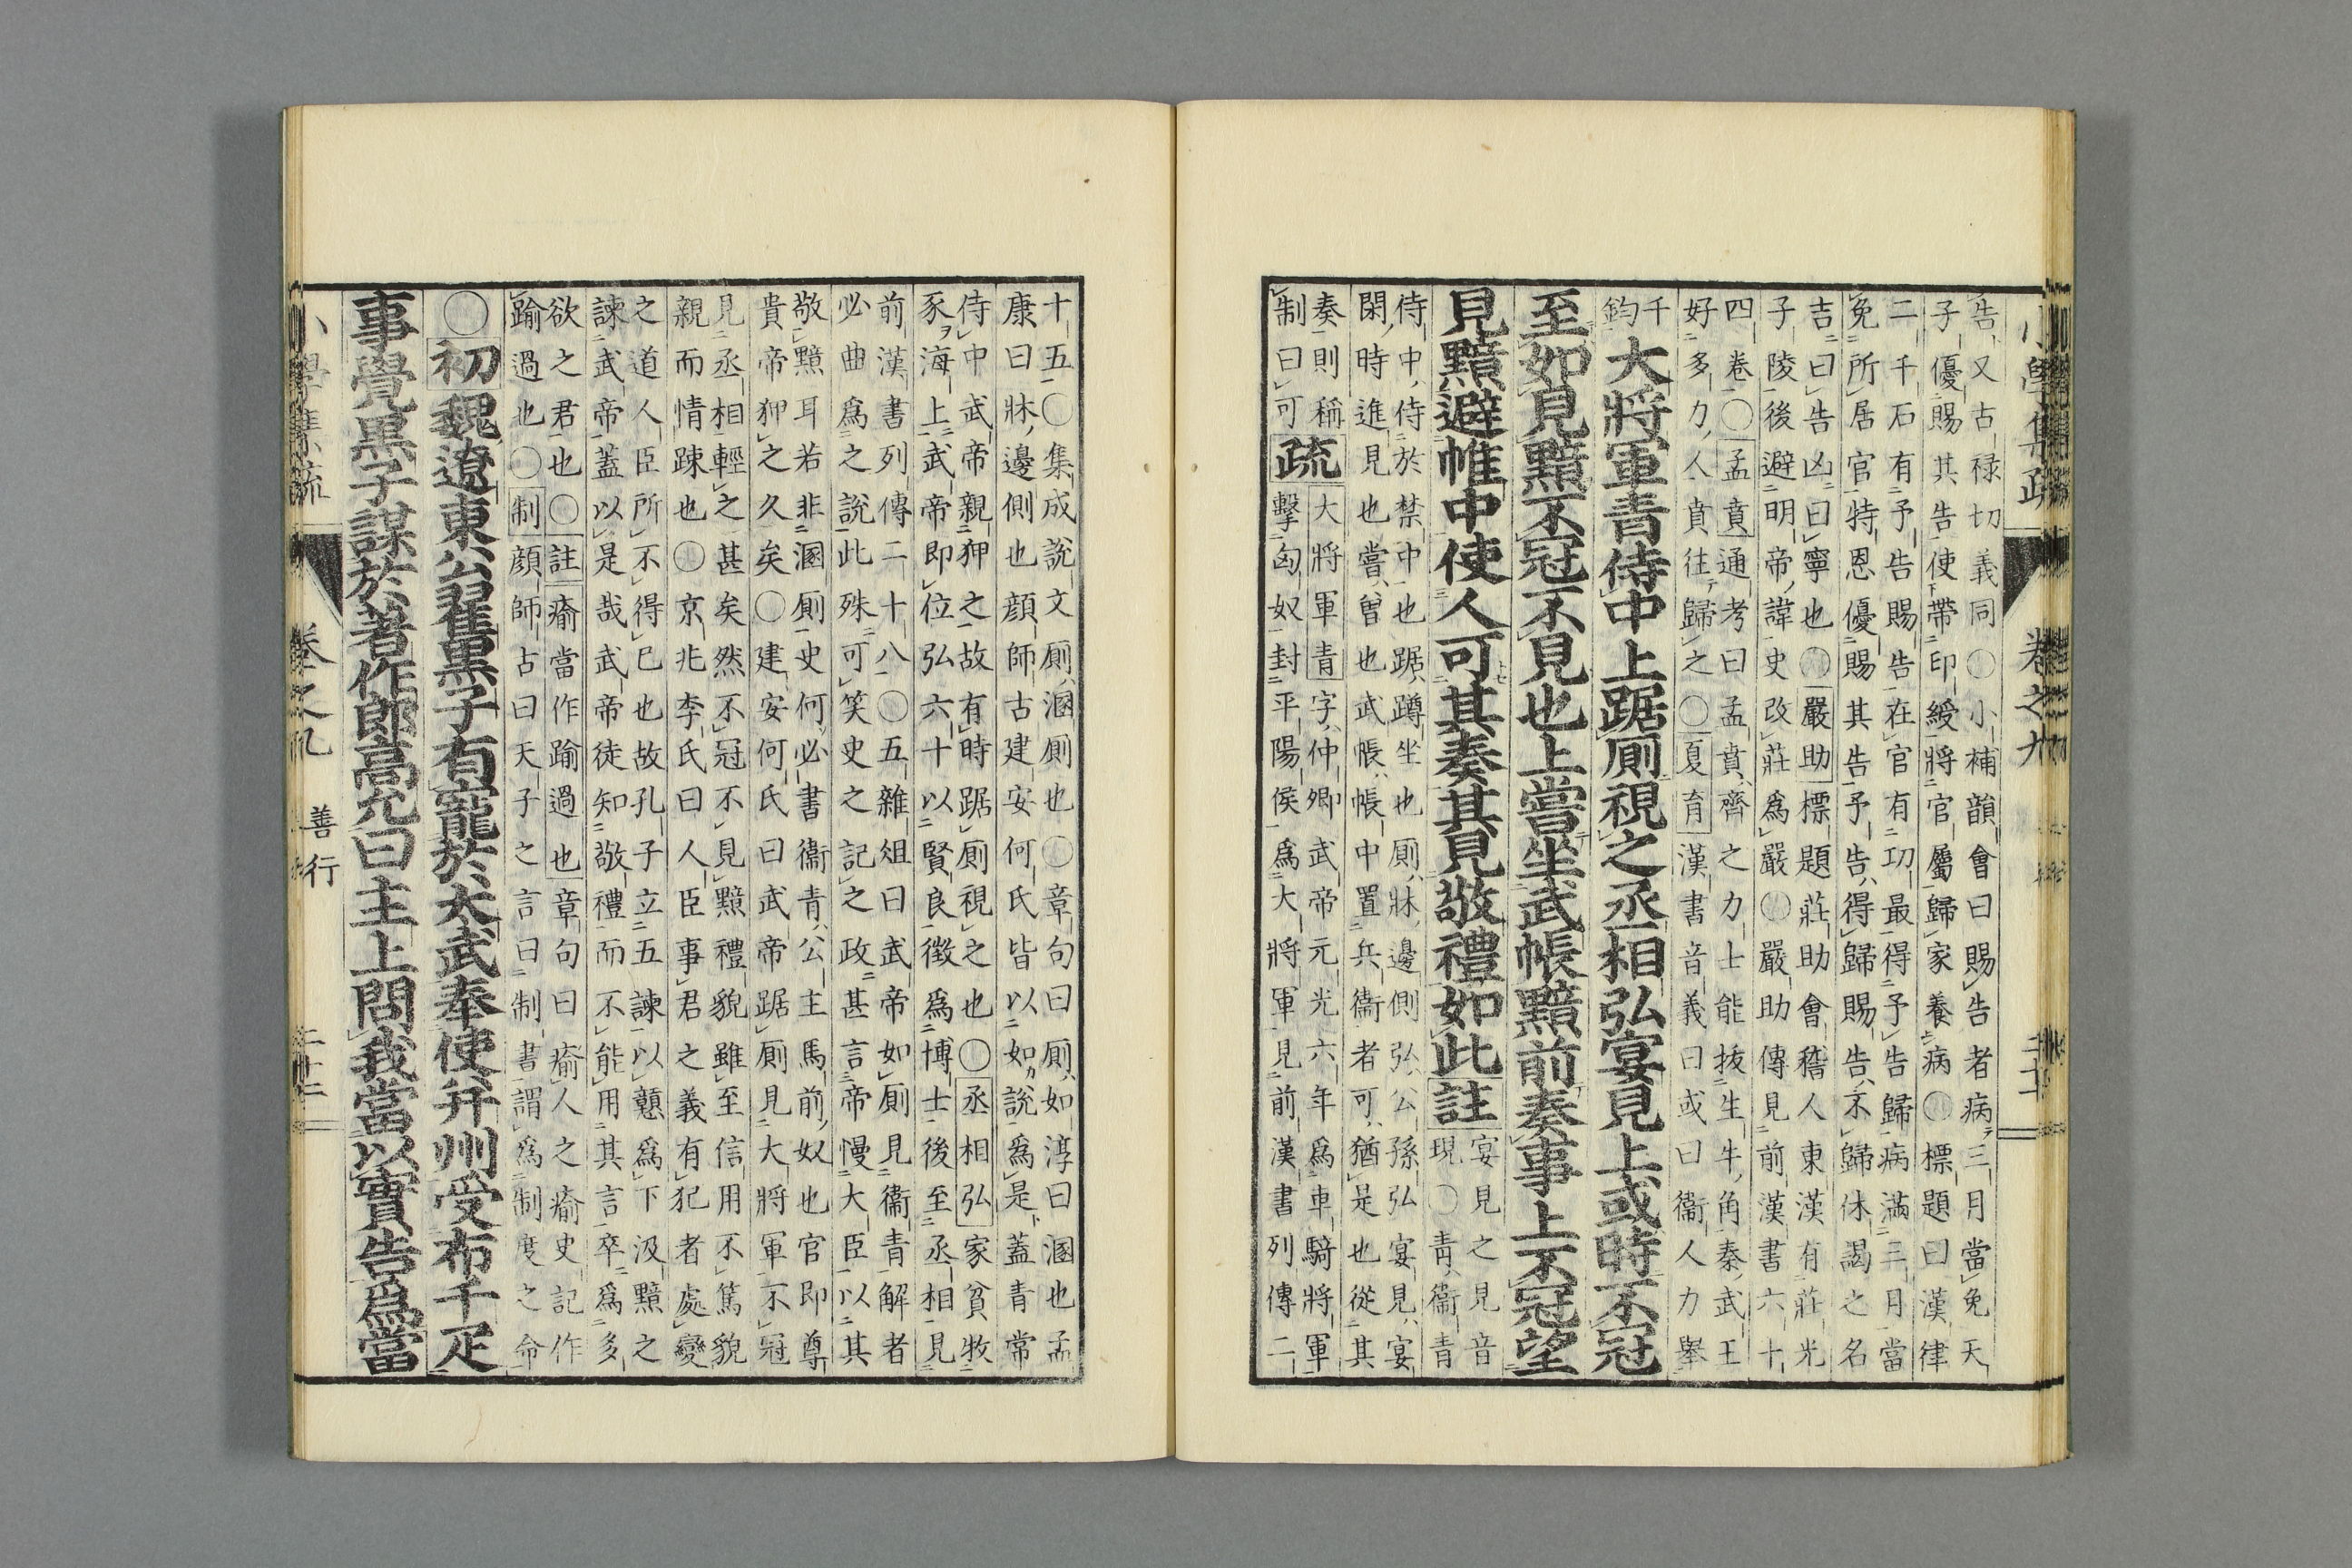 告又古禄切義同〇小補韻會曰賜告者病三月當免天
子優賜其告使帶印綬將官屬歸家養病〇標題曰漢律
二千石有予告賜告在官有功最得予告歸病滿三月當
免所居官特恩優賜其告予告得歸賜告不歸休謁之名
吉曰告凶曰寧也〇嚴助標題莊助會稽人東漢有莊光
子陵後避明帝諱史改莊爲嚴〇嚴助傳見前漢書六十
四卷〇孟賁通考曰孟賁齊之力士能拔生牛角秦武王
好多力人賁往歸之〇夏育漢書音義曰或曰衞人力擧
千
鈞
大將軍青侍中上踞厠視之丞相弘宴見上或時不冠
至如見黯不冠不見也上嘗坐武帳黯前奏事上不冠望
見黯避帷中使人可其奏其見敬禮如此註
宴見之見音
現〇青衞青
侍中侍於禁中也踞蹲坐也厠牀邊側弘公孫弘宴見宴
閑時進見也嘗曽也武帳帳中置兵衞者可猶是也從其
奏則稱
制曰可
疏
大將軍青字仲卿武帝元光六年爲車騎將軍
擊匈奴封平陽侯爲大將軍見前漢書列傳二
小學集疏
卷之九
十五〇集成說文厠溷厠也〇章句曰厠如淳曰溷也孟
康曰牀邊側也顔師古建安何氏皆以如說爲是蓋青常
侍中武帝親狎之故有時踞厠視之也〇丞相弘家貧牧
豕海上武帝即位弘六十以賢良徴爲博士後至丞相見
前漢書列傳二十八〇五雜俎曰武帝如厠見衞青解者
必曲爲之說此殊可笑史之記之政甚言帝慢大臣以其
敬黯耳若非溷厠史何必書衞青公主馬前奴也官即尊
貴帝狎之久矣〇建安何氏曰武帝踞厠見大將軍不冠
見丞相輕之甚矣然不冠不見黯禮貌雖至信用不篤貌
親而情踈也〇京兆李氏曰人臣事君之義有犯者處變
之道人臣所不得已也故孔子立五諫以戇爲下汲黯之
諫武帝蓋以是哉武帝徒知敬禮而不能用其言卒爲多
欲之君也〇註瘉當作踰過也章句曰瘉人之瘉史記作
踰過也〇制顔師古曰天子之言曰制書謂爲制度之命
〇初魏遼東公翟黒子有寵於太武奉使幷州受布千疋
事覺黒子謀於著作郎高允曰主上問我當以實告爲當
小學集疏
卷之九
善行
二十二